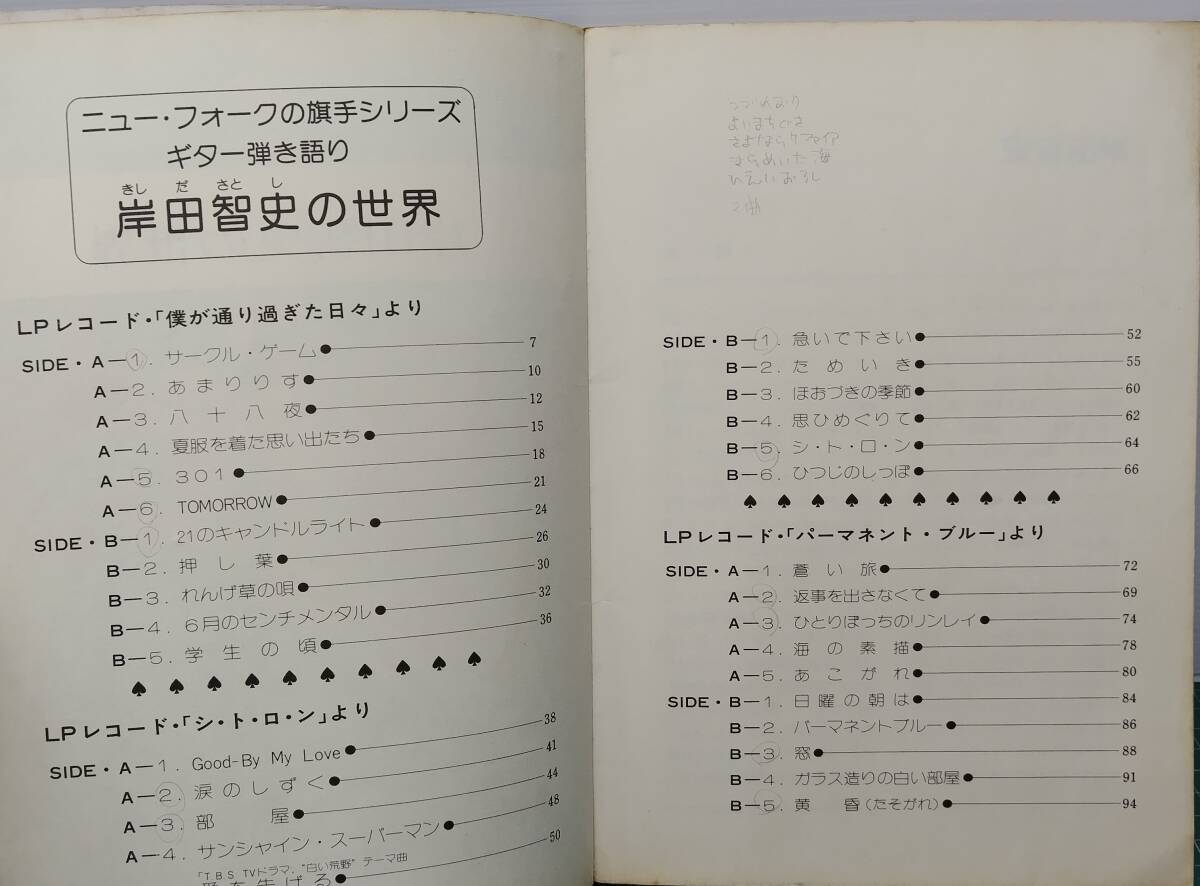 ニュー・フォークの旗手シリーズ
ギター弾き語り
きし だ さと し
岸田智史の世界
LPレコード・「僕が通り過ぎた日々」より
SIDE・A—1. サークル・ゲーム● 7
A—2. あまりりす● 10
A—3. 八十八夜● 12
A—4. 夏服を着た思い出たち● 15
A—5. 301● 18
A—6. TOMORROW● 21
SIDE・B—1. 21のキャンドルライト● 24
B—2. 押し葉● 26
B—3. れんげ草の唄● 30
B—4. 6月のセンチメンタル● 32
B—5. 学生の頃● 36
♠ ♠ ♠ ♠ ♠ ♠ ♠ ♠ ♠ ♠
LPレコード・「シ・ト・ロ・ン」より
SIDE・A—1. Good-By My Love● 38
A—2. 涙のしずく● 41
A—3. 部屋● 44
A—4. サンシャイン・スーパーマン● 48
「T.B.S TVドラマ, "白い荒野" テーマ曲
● 50
よいまちぐさ
さらめいた海
ひえいおろし
SIDE・B—1. 急いで下さい● 52
B—2. ためいき● 55
B—3. ほおづきの季節● 60
B—4. 思ひめぐりて● 62
B—5. シ・ト・ロ・ン● 64
B—6. ひつじのしっぽ● 66
♠ ♠ ♠ ♠ ♠ ♠ ♠ ♠ ♠ ♠
LPレコード・「パーマネント・ブルー」より
SIDE・A—1. 蒼い旅● 72
A—2. 返事を出さなくて● 69
A—3. ひとりぼっちのリンレイ● 74
A—4. 海の素描● 78
A—5. あこがれ● 80
SIDE・B—1. 日曜の朝は● 84
B—2. パーマネントブルー● 86
B—3. 窓● 88
B—4. ガラス造りの白い部屋● 91
B—5. 黄昏(たそがれ)● 94